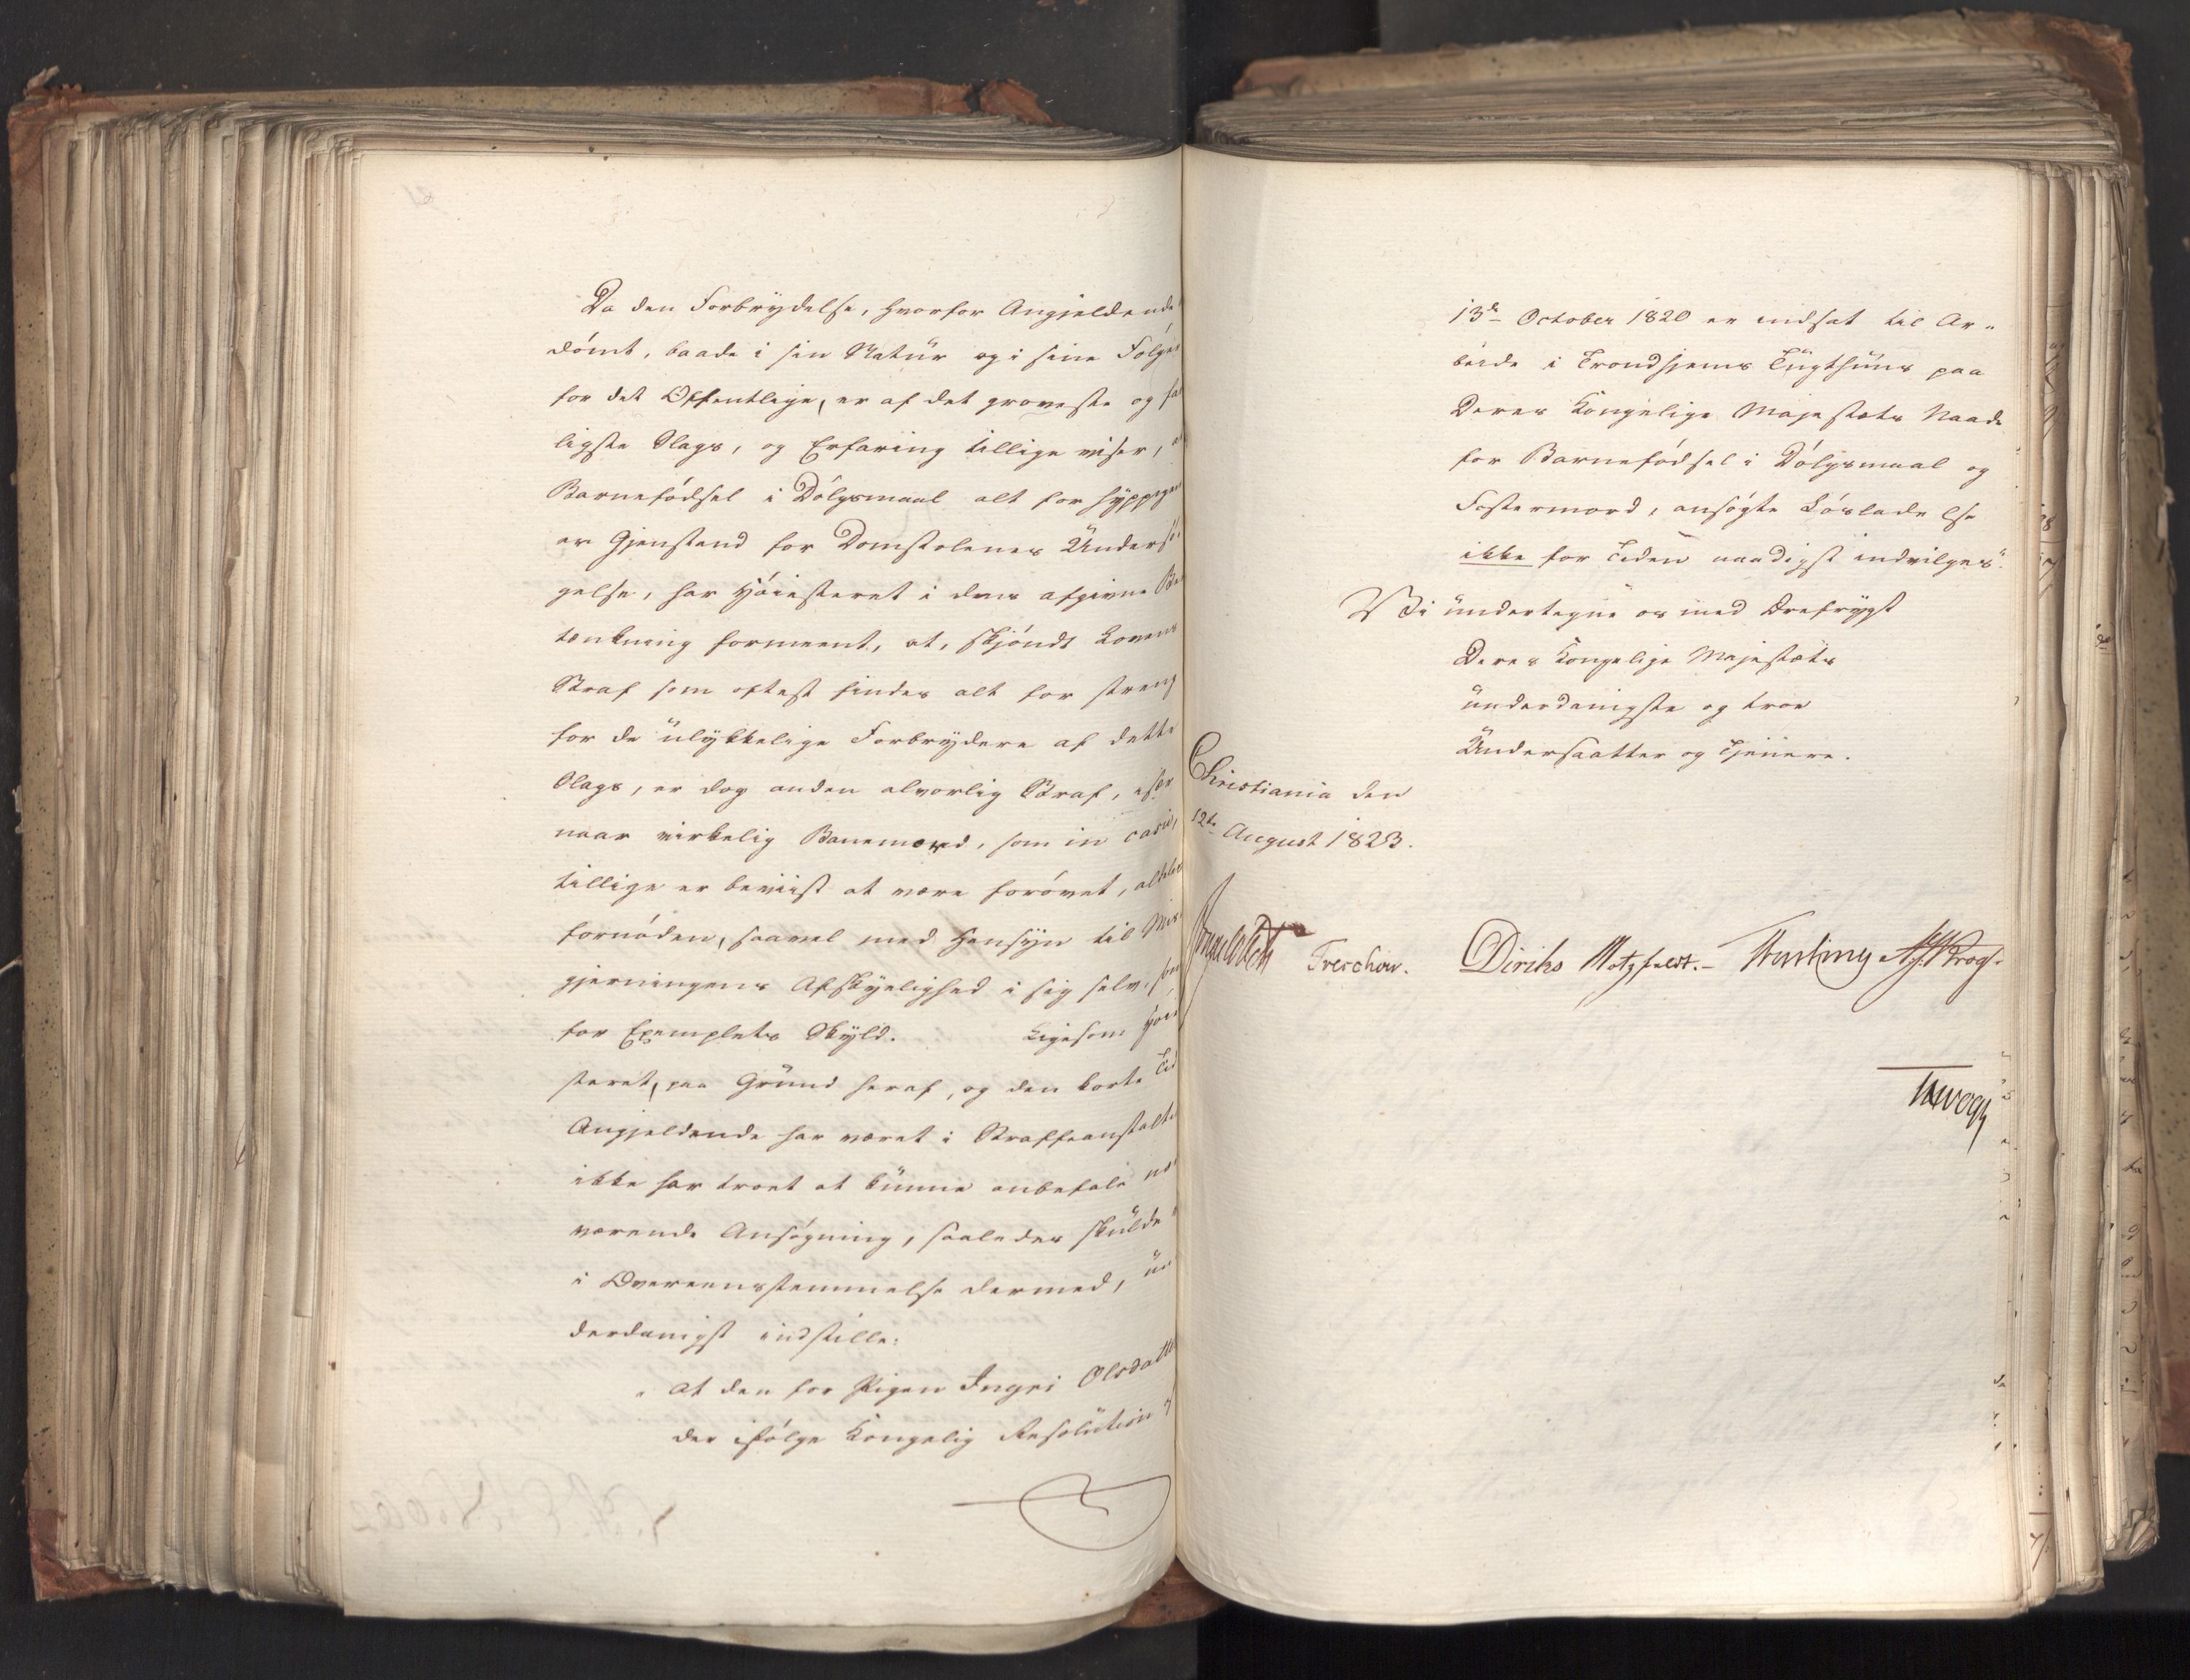 Da den Forbrydelse, hvorfor Angjeldende
dömt, baade i sin Natur og i sine Følger
for det Offentlige, er af det groveste og far
ligste Slags, og Erfaring tillige viser, a
Barnefödsel i Dölgsmaal alt for hyppigen
er Gjenstand for Domstolenes Undersö
gelse, har Höiesteret i dens afgivne Be
tænkning formeent, at, skjöndt Lovens
Straf som oftest findes alt for streng
for de ulykkelige Forbrydere af dette
Slags, er dog anden alvorlig Straf, især
naar virkelig Barnemord, som in casu,
tillige er beviist at være forövet, aldeles
fornöden, saavel med Hensyn til Mis
gjerningens Afskyelighed i sig selv, som
for Exemplets Skyld. Ligesom Höie
steret, paa Grund heraf, og den korte Tid
Angjeldende har været i Straffeanstalten
ikke har troet at kunne anbefale nær
værende Ansögning, saaledes skulde
i Overeensstemmelse dermed, un
derdanigst indstille:
"At den for Pigen Ingri Olsdatter
der ifölge Kongelig Resolution af
13de October 1820 er indsat til Ar-
beide i Trondhjems Tugthuus paa
Deres Kongelige Majestæts Naade
for Barnefödsel i Dölgsmaal og
Fostermord, ansögte Lösladelse
ikke for Tiden naadigst indvilges".
Vi undertegne os med Ærefrygt
Deres Kongelige Majestæts
underdanigste og troe
Undersaatter og Tjenere.
Christiania den
12te August 1823.
Treschow. Diriks Motzfeldt.- Krog.